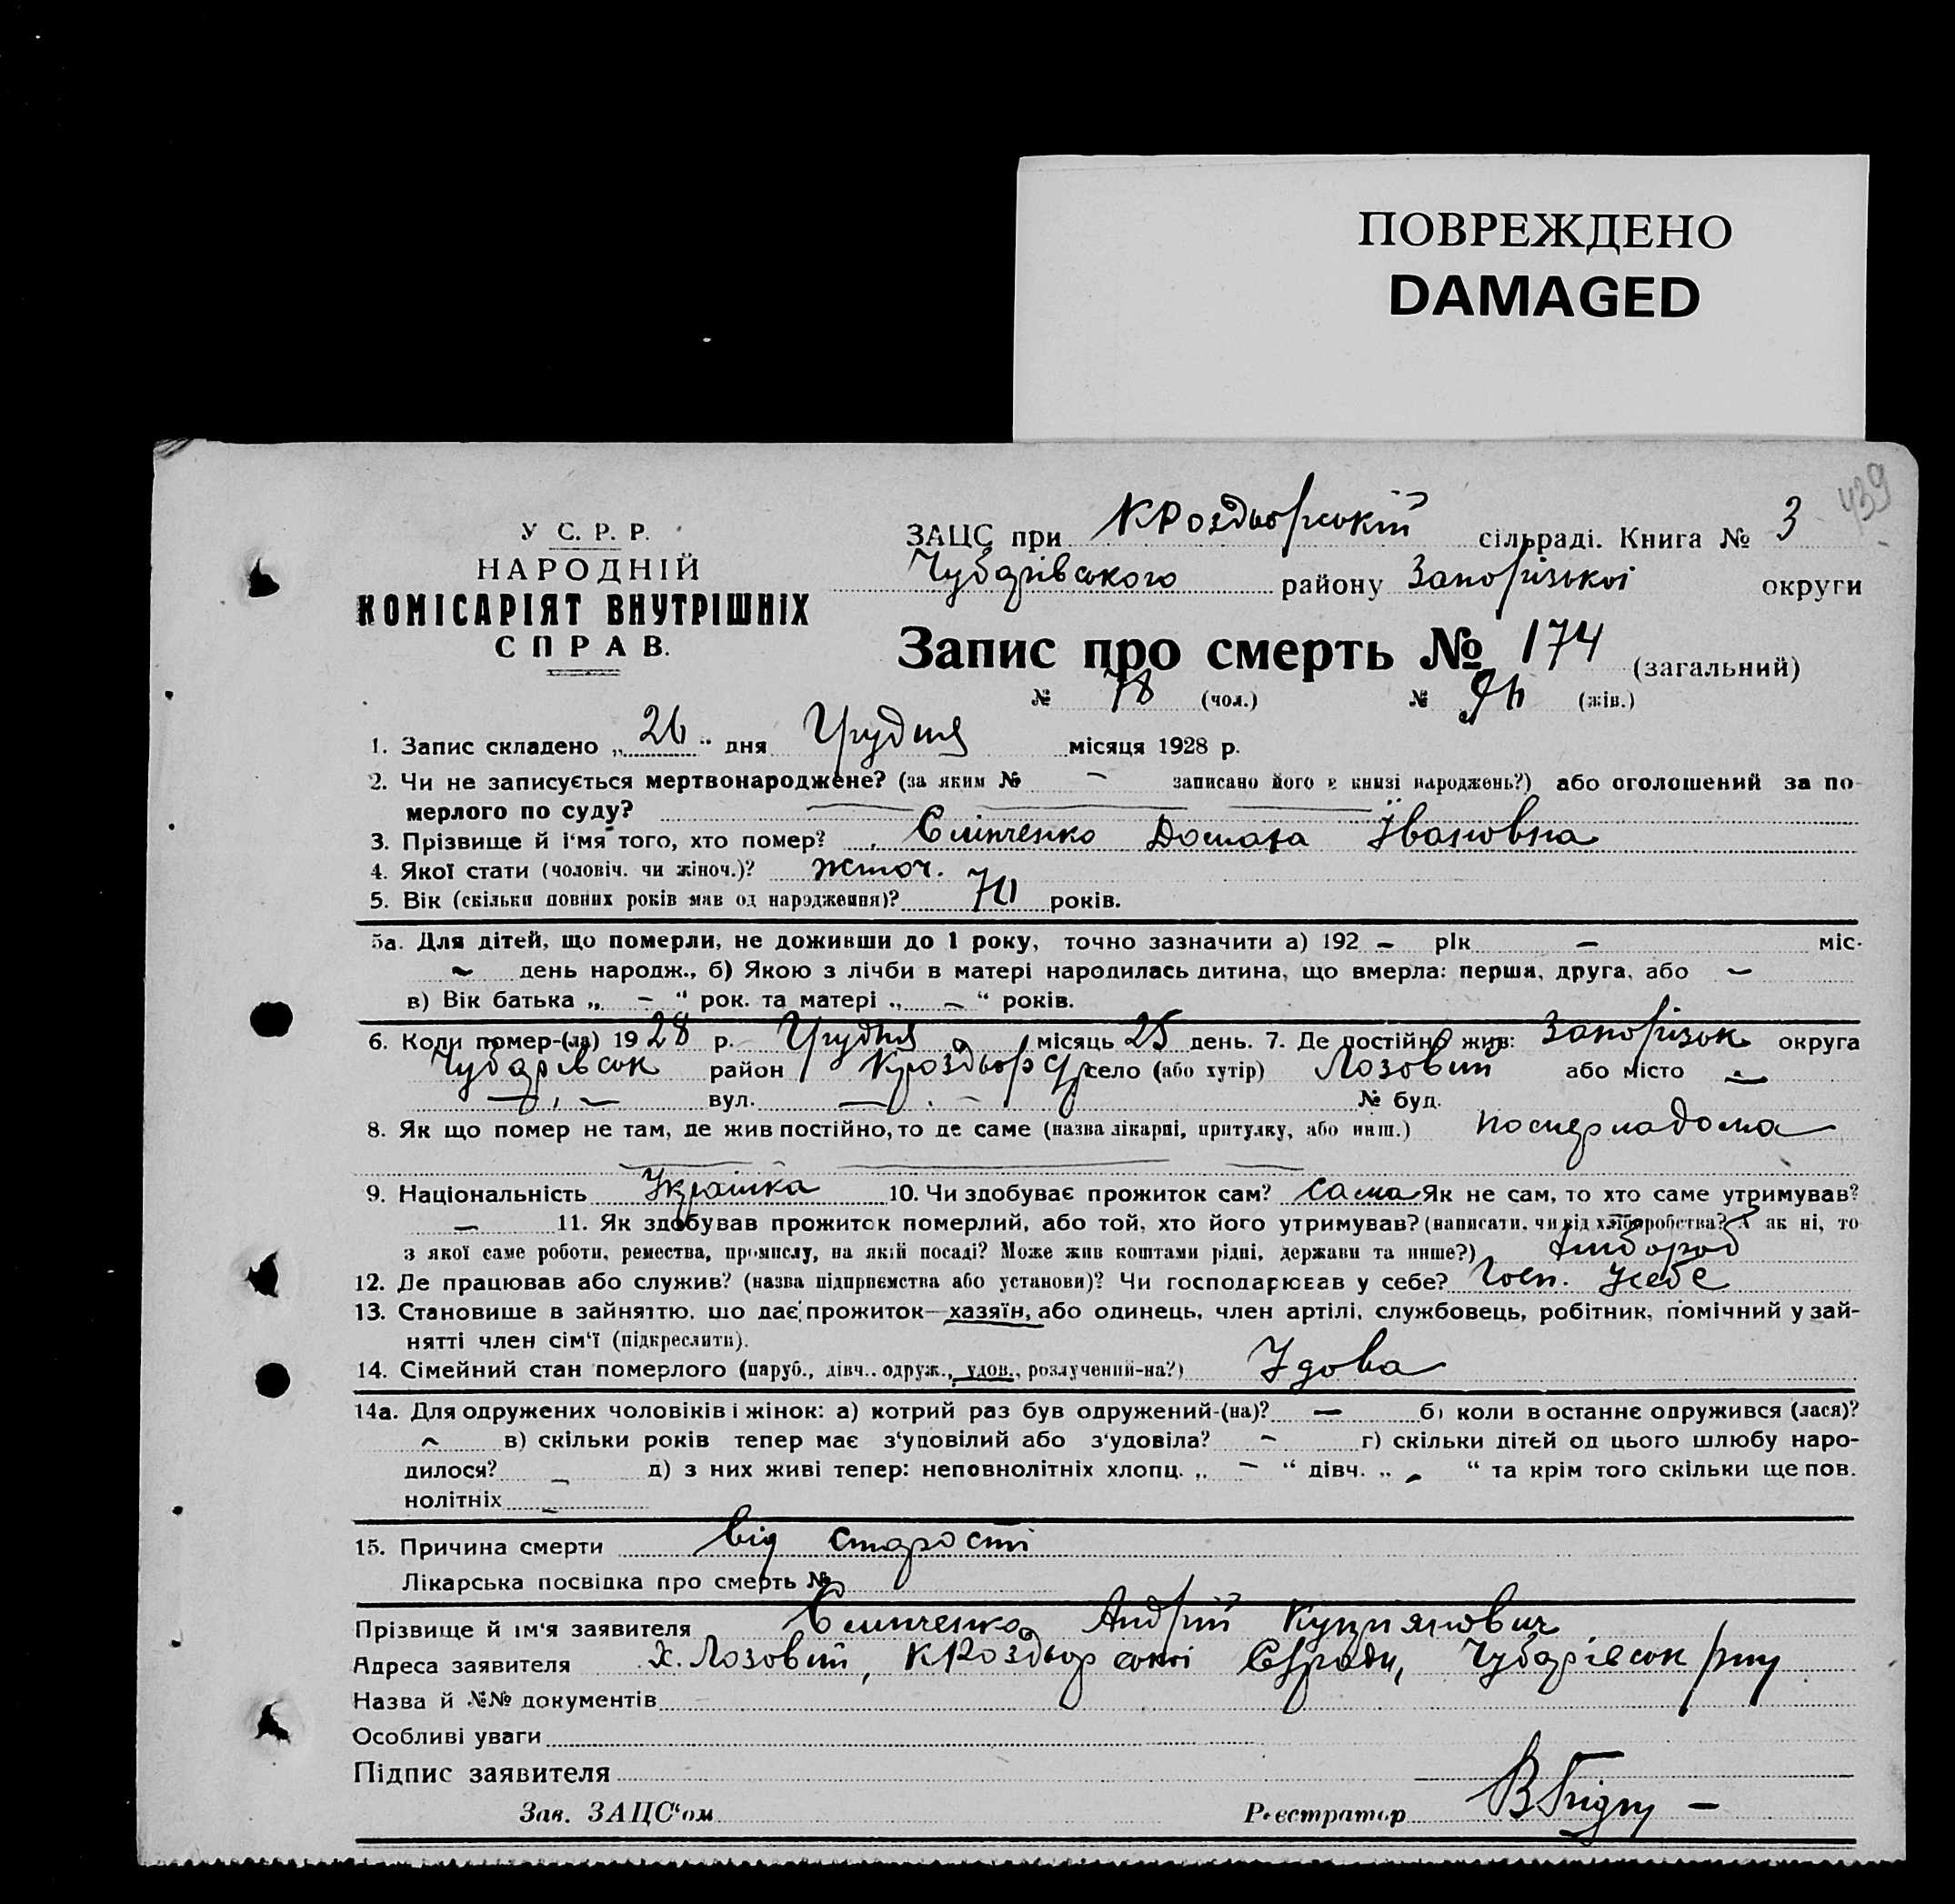 ПОВРЕЖДЕНО
DAMAGED
439
У С. Р. Р.
НАРОДНІЙ
КОМІСАРІЯТ ВНУТРІШНІХ
СПРАВ.
ЗАЦС при КРоздьорській сільраді. Книга № 3
Чубарівського району Запорізької округи
Запис про смерть № 174 (загальний)
№ 78 (чол.) № (жін.)
1. Запис складено „ 26 “ дня Грудня місяця 1928 р.
2. Чи не записується мертвонароджене? (за яким № – записано його в книзі народжень?) або оголошений за по-
мерлого по суду?
3. Прізвище й і'мя того, хто помер? Івановна
4. Якої статі (чоловіч. чи жіноч.)? жіноч.
5. Вік (скільки повних років мав од народження)? років.
5а. Для дітей, що померли, не доживши до 1 року, точно зазначити а) 192 – рік – міс.
– день народж., б) Якою з лічби в матері народилась дитина, що вмерла: перша, друга, або –
в) Вік батька „ – “ рок. та матері „ – “ років.
6. Коли помер-(ла) 1928 р. Грудня місяць 25 день. 7. Де постійно жив: Запорізьк округа
Чубарівськ район КРоздьор село (або хутір) Лозовий або місто –
– вул. – № буд.
8. Як що помер не там, де жив постійно, то де саме (назва лікарні, притулку, або инш.) дома
9. Національність Українка 10. Чи здобуває прожиток сам? сама Як не сам, то хто саме утримував?
– 11. Як здобував прожиток померлий, або той, хто його утримував? (написати, чи від хліборобства? А як ні, то
з якої саме роботи, ремества, промислу, на якій посаді? Може жив коштами рідні, держави та инше?)
12. Де працював або служив? (назва підприємства або установи)? Чи господарював у себе? Госп. Усебе
13. Становище в зайнятті, що дає прожиток—хазяїн, або одинець, член артілі, службовець, робітник, помічний у зай-
нятті член сім'ї (підкреслити).
14. Сімейний стан померлого (паруб., дівч., одруж., удов., розлучений-на?) Удова
14а. Для одружених чоловіків і жінок: а) котрий раз був одружений-(на)? – б) коли в останнє одружився (лася)?
– в) скільки років тепер має з'удовілий або з'удовіла? – г) скільки дітей од цього шлюбу наро-
дилося? – д) з них живі тепер: неповнолітніх хлопц. „ – “ дівч. „ – “ та крім того скільки ще пов.
нолітніх –
15. Причина смерти від старості
Лікарська посвідка про смерть №
Прізвище й ім'я заявителя Андрій
Адреса заявителя Х. Лозовий, КРоздьорської С/ради, Чубарівськ р-ну
Назва й №№ документів
Особливі уваги
Підпис заявителя
Зав. ЗАЦС'ом Реєстратор